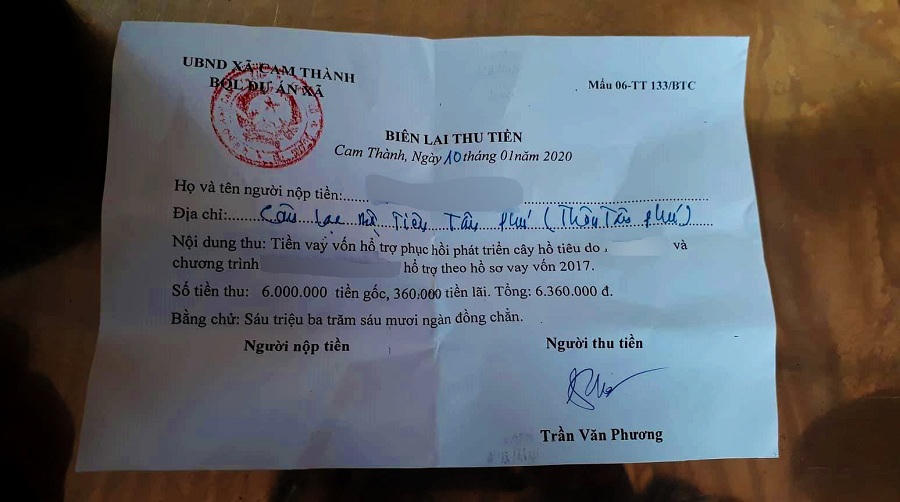 UBND XÃ CAM THÀNH
BQL DỰ ÁN XÃ
Mẫu 06-TT 133/BTC
BIÊN LAI THU TIỀN
Cam Thành, Ngày 10 tháng 01 năm 2020
Họ và tên người nộp tiền:
Địa chỉ: Câu Lạc Tiêu Tân Phú (Thôn Tân Phú)
Nội dung thu: Tiền vay vốn hỗ trợ phục hồi phát triển cây hồ tiêu do và
chương trình hổ trợ theo hồ sơ vay vốn 2017.
Số tiền thu: 6.000.000 tiền gốc, 360.000 tiền lãi. Tổng: 6.360.000 đ.
Bằng chử: Sáu triệu ba trăm sáu mươi ngàn đồng chẳn.
Người nộp tiền
Người thu tiền
Trần Văn Phương